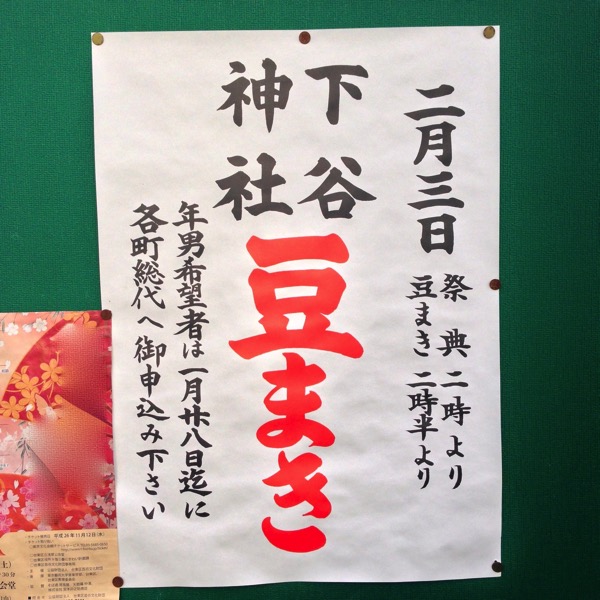 二月三日
祭典 二時より
豆まき 二時半より
下谷
神社
豆まき
年男希望者は一月廿八日迄に
各町総代へ御申込み下さい
平成26年11月12日(水)